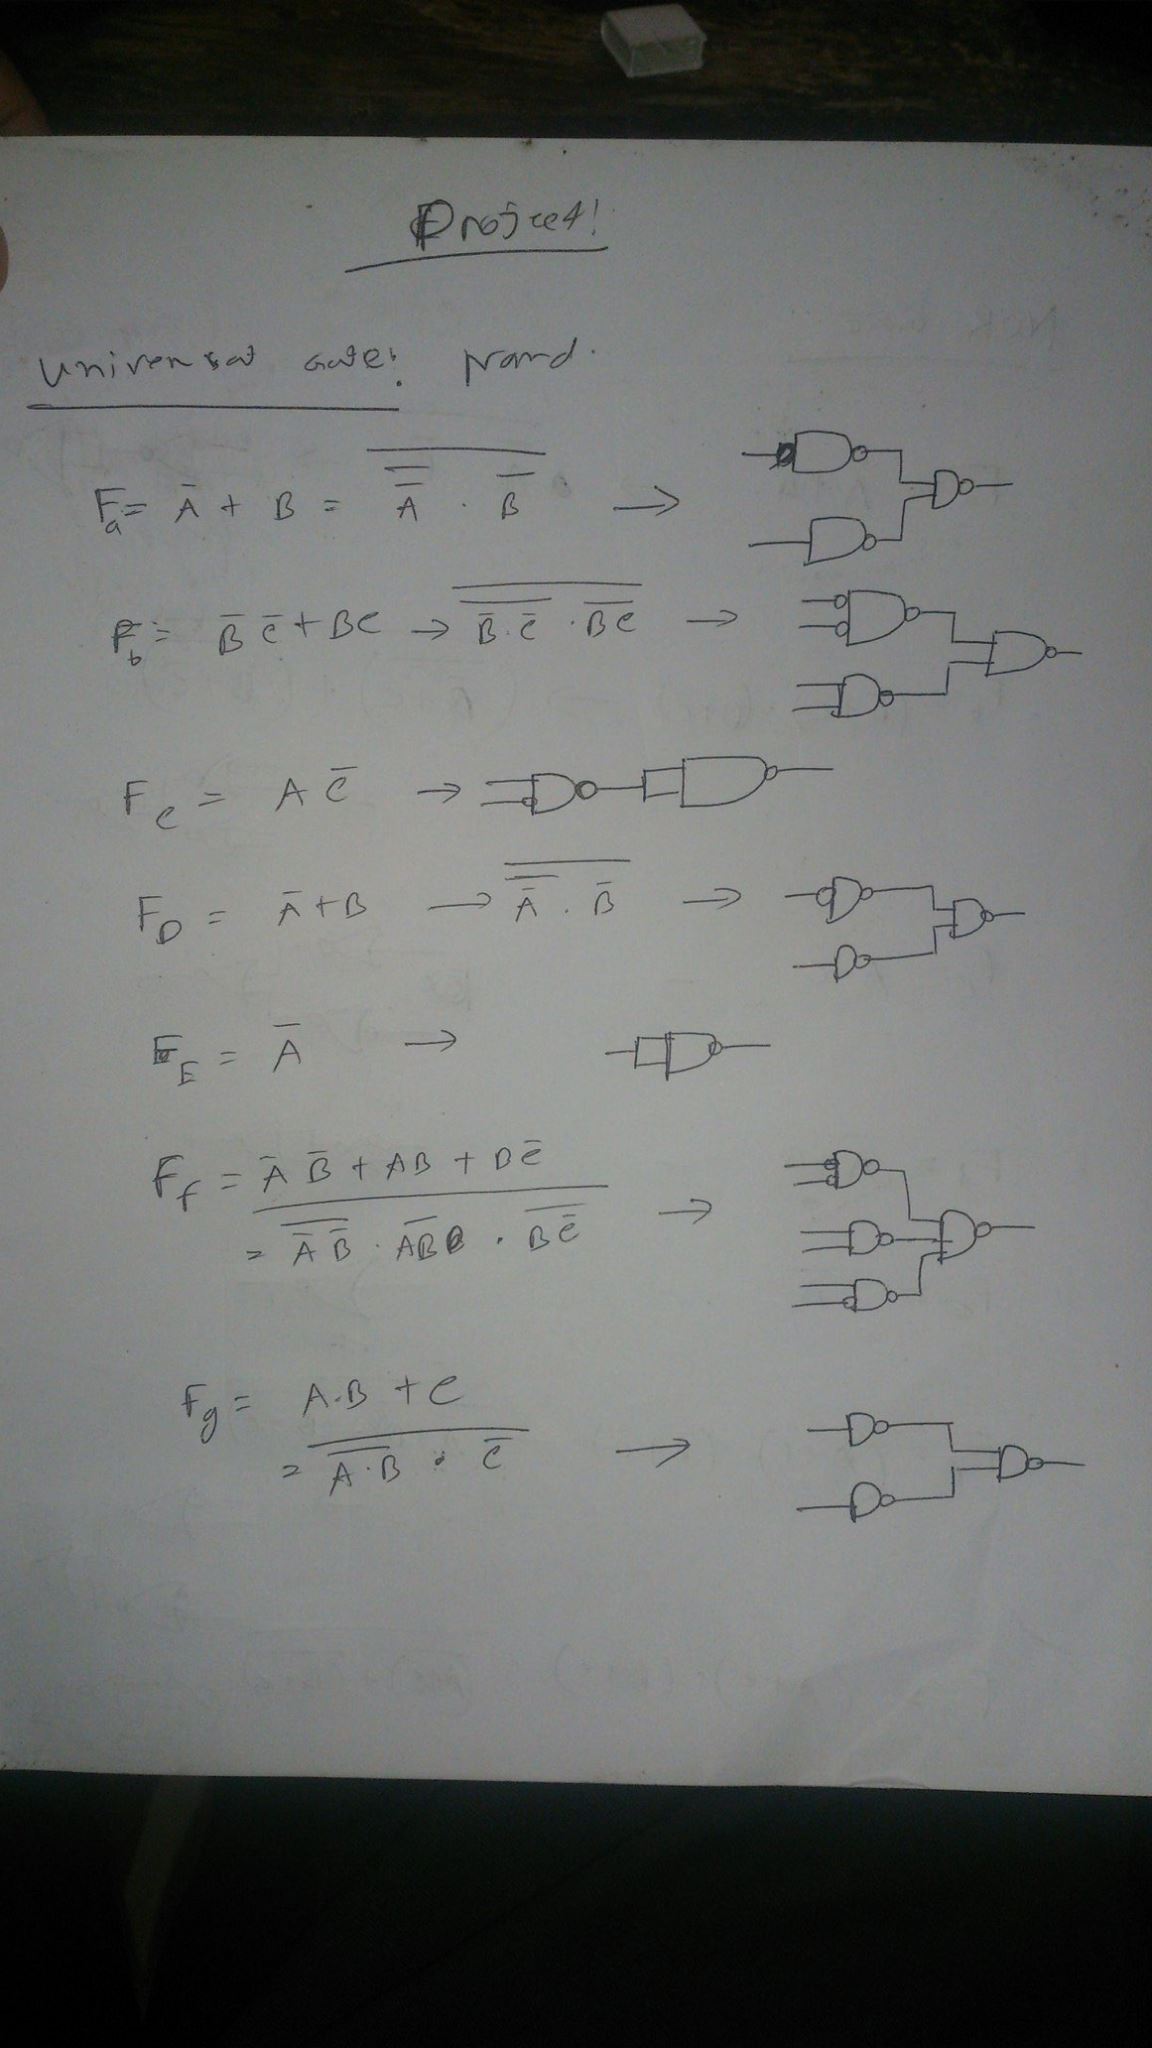 Project!
Universal Gate: Nand.
F̅a = A̅ + B = \overline{\overline{A̅} . B̅} →
Fb = B̅ C̅ + BC → \overline{\overline{B̅.C̅} . \overline{BC}} →
Fc = A C̅ →
FD = A̅ + B → \overline{\overline{A̅} . B̅} →
FE = A̅ →
Ff = A̅ B̅ + AB + BC̅
= \overline{\overline{A̅ B̅} . \overline{AB} . \overline{BC̅}} →
Fg = A.B + C
= \overline{\overline{A.B} . C̅} →